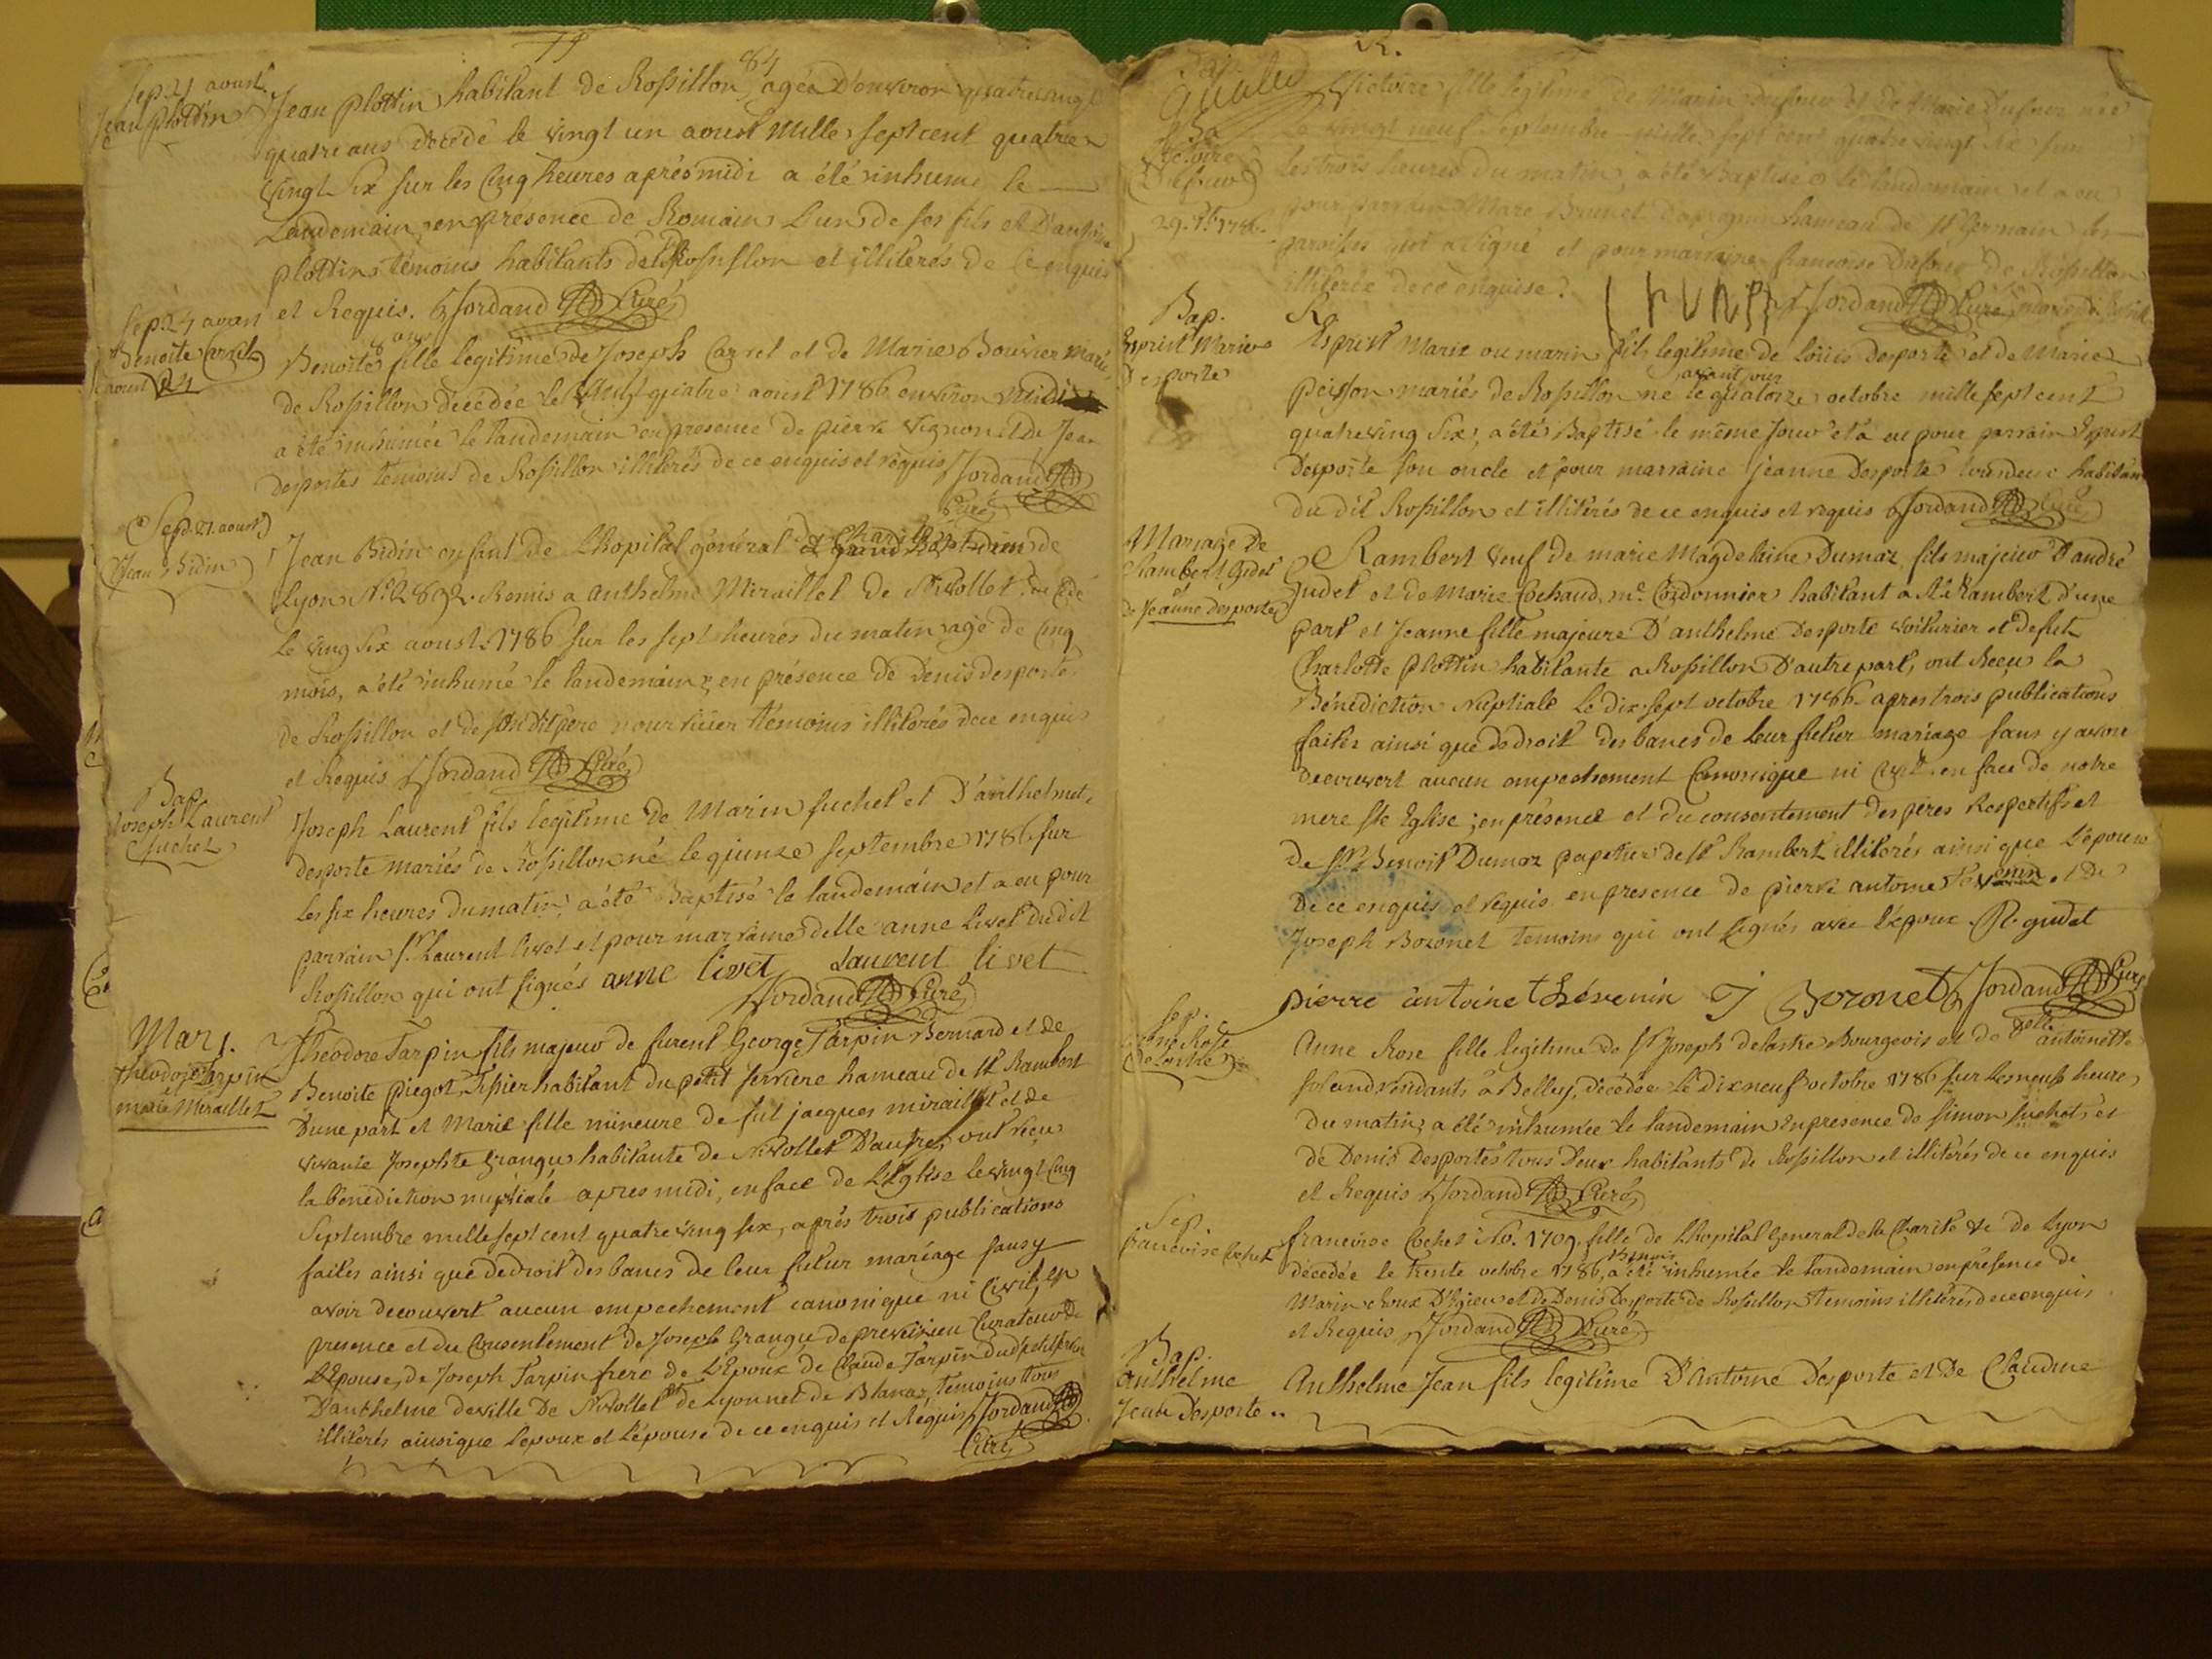 84
Sep. 21 aoust.
Jean Plottin
Jean Plottin habitant de Rossillon agé D'environ quatrevingt
quatre ans décédé le vingt un aoust Mille sept cent quatre
vingt six sur les cinq heures aprés midi a été inhumé le
Landemain en présence de Romain L'un de ses fils et D'
plottin témoins habitants de Rossillon et illiterés de ce enquis
et Requis. Jordand Curé
Benoite Carrel
aoust
8 ans
Benoite fille legitime de Joseph Carrel et de Marie Bouvier mariés
de Rossillon décédée le vingt quatre aoust 1786 environ midi
a été inhumée le landemain en presence de pierre Vignon et de Jean
desportes temoins de Rossillon illiterés de ce enquis et requis Jordand
Curé
Sep. 27. aoust
Jean Bidin
Jean Bidin enfant de L'hopital général et Charité de
Lyon N° 2892. Remis a Anthelme Miraillet de Nivollet décédé
le ving six aoust 1786 sur les sept heures du matin agé de Cinq
mois, a été inhumé le landemain en présence de Denis desporte
de Rossillon et de son dit pere nourricier témoins illiterés de ce enquis
et Requis Jordand Curé
Bap.
Joseph Laurent
Suchet
Joseph Laurent fils legitime de Marin Suchet et D'anthelmete
desporte mariés de Rossillon né le quinze septembre 1786 sur
les six heures du matin, a été Baptisé le landemain et a eu pour
parrain Sr. Laurent livet et pour marraine delle anne livet du dit
Rossillon qui ont signés anne livet Laurent livet
Jordand Curé
Mari.
théodore Tarpin
et
marie Miraillet
Théodore Tarpin fils majeur de furent George Tarpin Bernard et de
Benoite piegot, Tissier habitant du petit serriere hameau de St Rambert
D'une part et Marie fille mineure de fut jacques miraillet et de
vivante Josephte Grangu habitante de Nivollet D'autre, ont reçu
la bénédiction nuptiale apres midi, en face de L'Eglise le vingt cinq
Septembre mille sept cent quatre ving six, aprés trois publications
faites ainsi que de droit des bancs de leur futur mariage sans y
avoir decouvert aucun empechement canonique ni civil, en
presence et du Consentement de Joseph Grangu de Curateur de
L'Epouse, de Joseph Tarpin frere de L'Epoux de Claude Tarpin dud petit
D'anthelme deville de Nivollet et de Lyonnet de Blanas, temoins tous
illiterés ainsi que l'epoux et l'épouse de ce enquis et Réquis Jordand
Curé
Ba
Victoire
Dufour
29. 7bre 1786.
Victoire fille legitime de Marin Dufour et de Marie Dufour née
le vingt neuf Septembre mille sept cent quatre vingt six sur
les trois heures du matin, a été Baptisé le landemain et a eu
pour parrain Marc Brunet hameau de St Germain les
paroisses qui a signé et pour marraine francoise Dufour de Rossillon
illiterée de ce enquise. Jordand Curé
Bap.
Esprist Marie
Desporte
Esprist Marie ou marin fils legitime de Louis desporte et de Marie
peisson mariés de Rossillon né le quatorze octobre mille sept cent
quatre ving six, a été Baptisé le même jour et a eu pour parrain Esprit
Desporte son oncle et pour marraine jeanne Desporte habitans
du dit Rossillon et illitérés de ce enquis et requis Jordand Curé
Mariage de
Rambert Gudet
et
de Jeanne desportes
Rambert veuf de marie Magdelaine Dumaz, fils majeur D'andré
Gudet et de Marie Cochaud, me. Cordonnier habitant a St. Rambert d'une
part et Jeanne fille majeure D'anthelme Desporte voiturier et defute
Charlotte Plottin habitante a Rossillon D'autre part, ont Reçu la
Bénédiction Nuptiale Le dix sept octobre 1786 apres trois publications
faites ainsi que de droit des bancs de leur futur mariage sans y avoir
decouvert aucun empechement Canonique ni civil en face de notre
mere Ste Eglise ; en présence et du consentement des péres Respectifs et
de Sr. Benoit Dumaz papetier de St Rambert illiterés ainsi que l'épouse
De ce enquis et réquis. en presence de pierre antoine et de
Joseph Bozonet temoins qui ont signés avec l'époux. R. gudet
pierre antoine thévenin J Bozonet Jordand Curé
Sep.
Anne Rose
Delastre
Anne Rose fille legitime de Sr Joseph delastre Bourgeois et de Delle antoinette
résidants a Belley, décédée le dix neuf octobre 1786 sur les neuf heures
du matin, a été inhumée le landemain en presence de simon suchet et
de Denis Desportes tous deux habitants de Rossillon et illitérés de ce enquis
et Requis Jordand Curé
Sep.
francoise Cochet
francoise Cochet No. 1709. fille de L'hopital General de la Charité de Lyon
décédée le trente octobre 1786, a été inhumée le landemain en présence de
Marin et de Denis Desporte de Rossillon temoins illiterés de ce enquis
et Requis Jordand Curé
Bap.
Anthelme
Jean Desporte
Anthelme Jean fils legitime D'Antoine Desporte et de Claudine